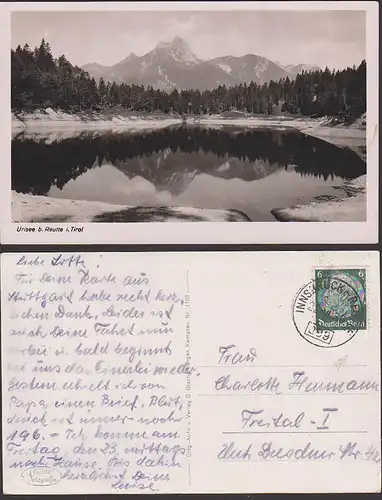 Urisee b. Reutte i. Tirol
Liebe Lotti!
Für Deine Karte aus
Stuttgart habe recht herz-
lichen Dank. Leider ist
auch Deine Fahrt nun
vorbei u. bald beginnt
bei uns das Einerlei wieder.
Gestern erhielt ich von
Papa einen Brief.
ist immer noch
196. – Ich komme am
Freitag, den 23. mittags
nach Hause. Bis dahin
herzlichst Deine
Luise
Echte
Fotografie
Kempten, Nr. 1103
6 6
Deutsches Reich
INNSBRUCK
Frau
Charlotte Hermann
Freital - I
Dresdner Str.